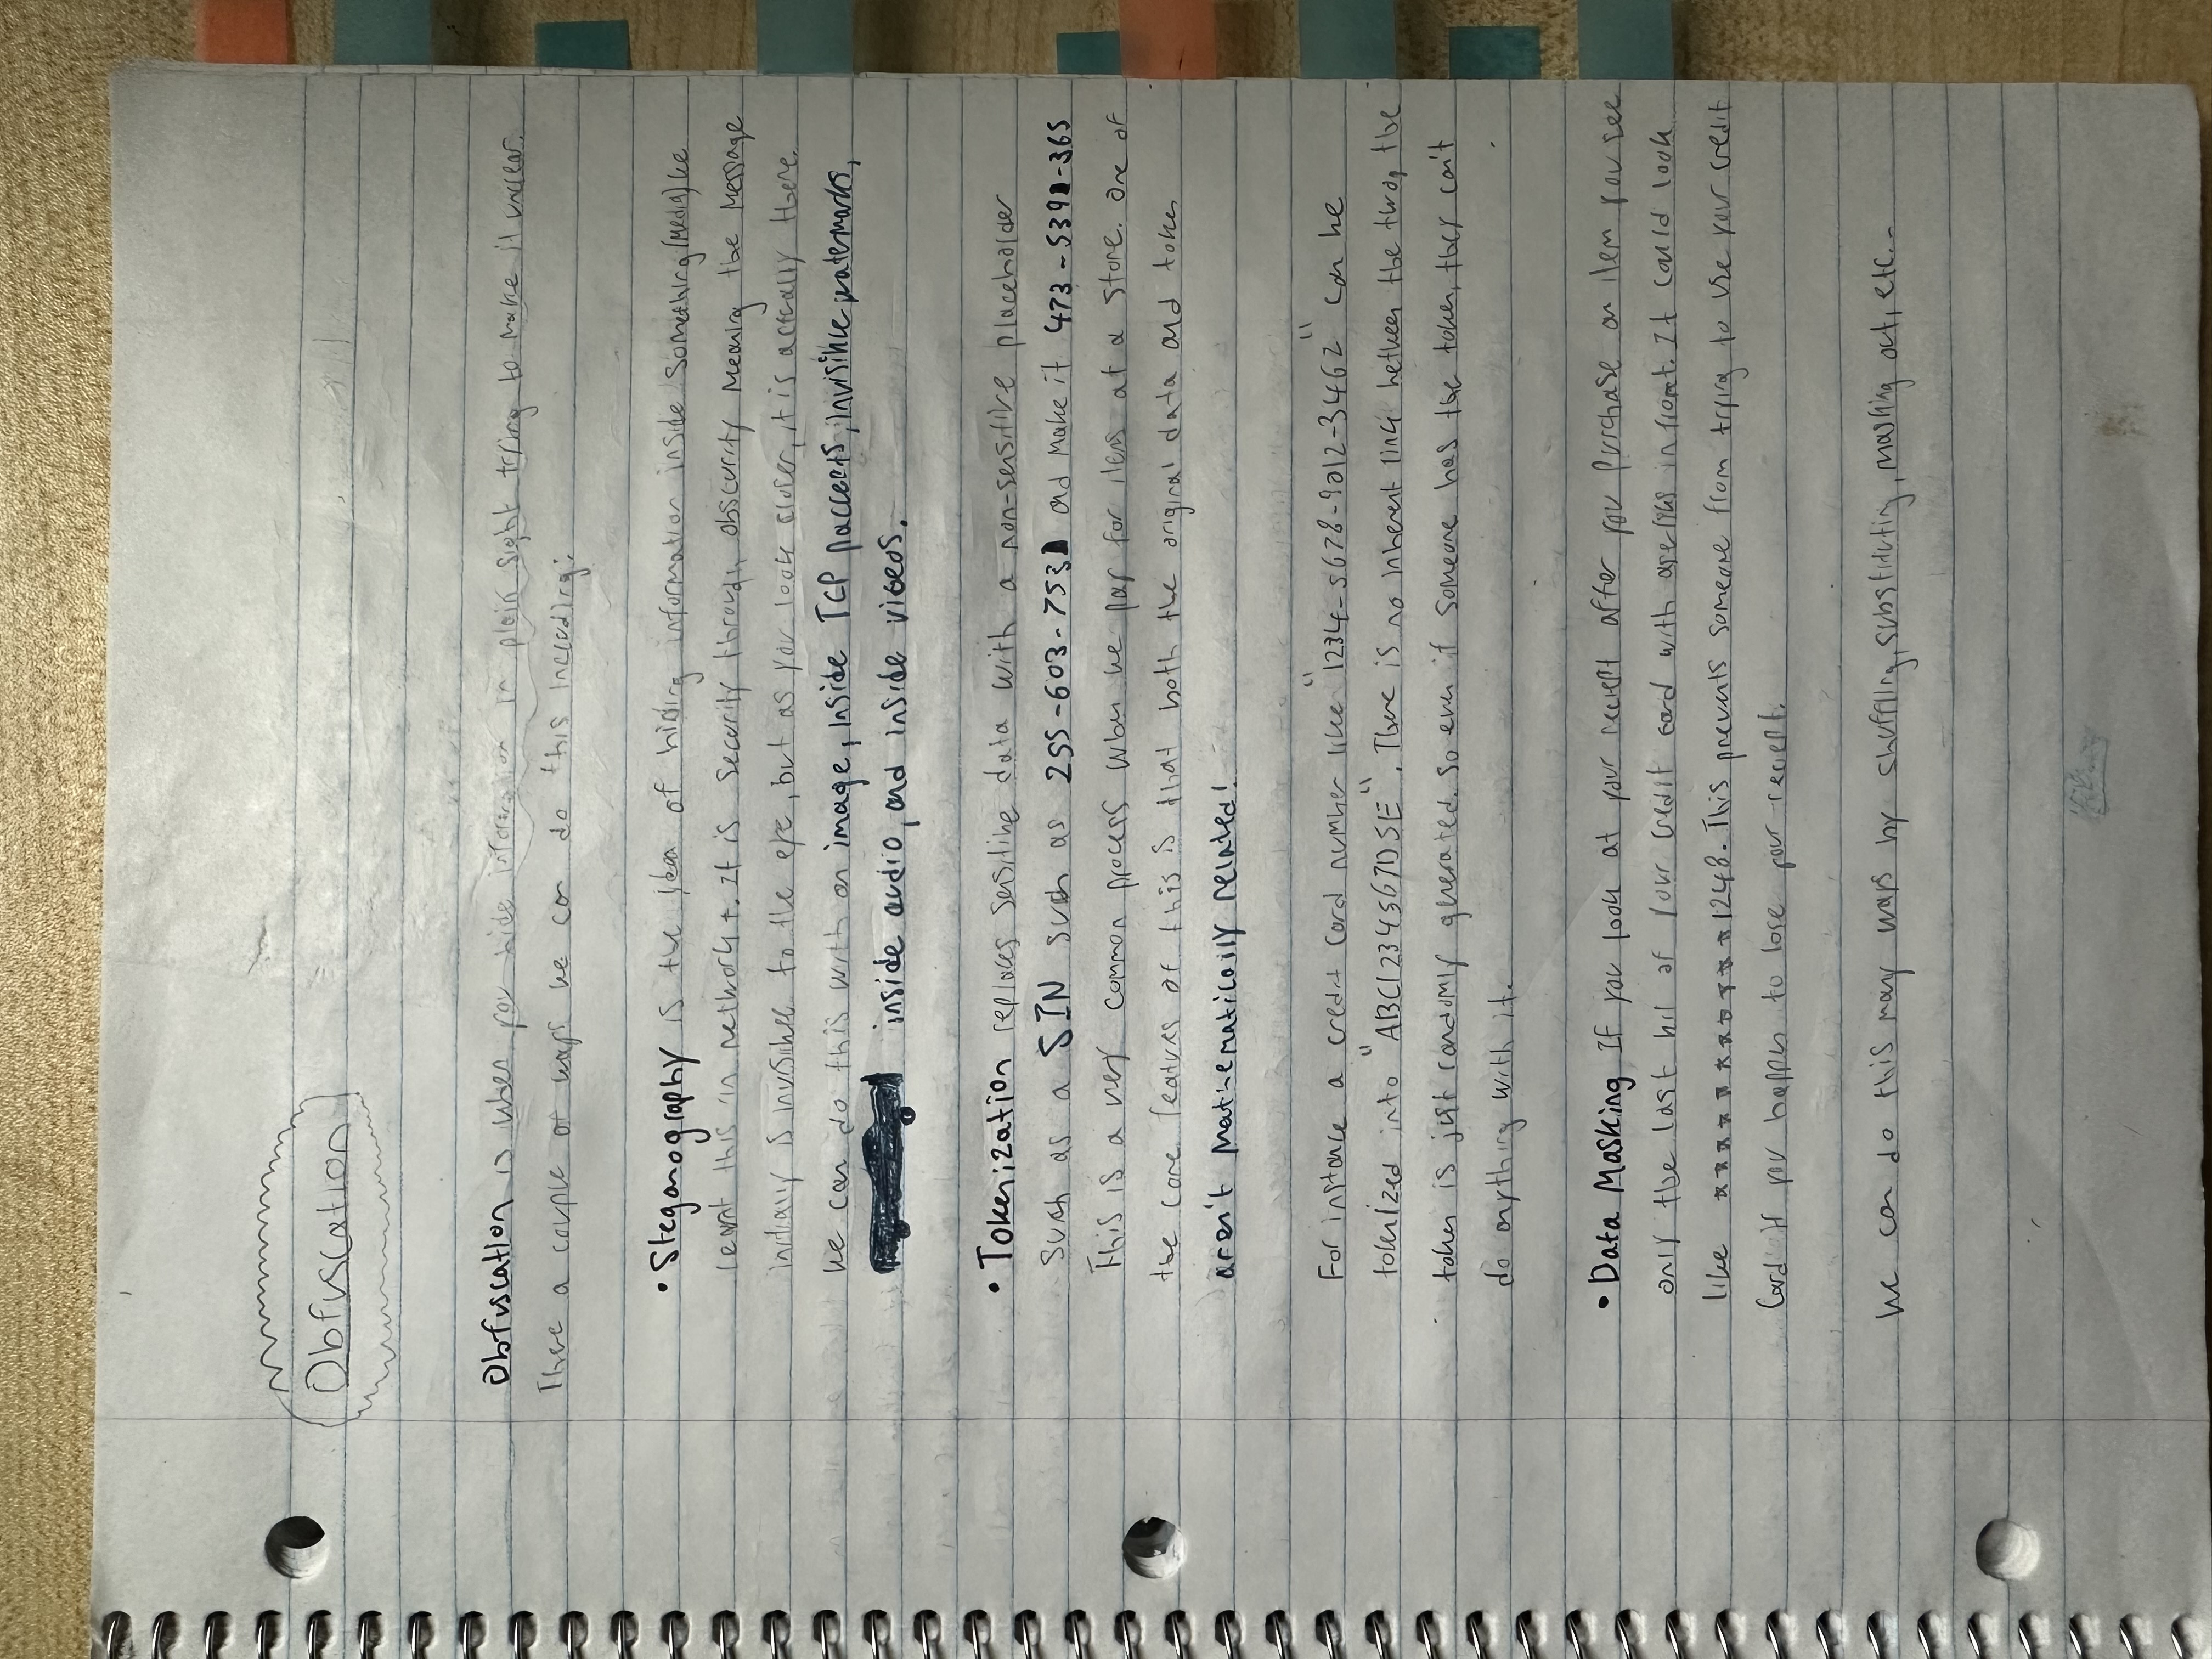 Obfuscation
Obfuscation is when you hide information in plain sight trying to make it unclear.
There a couple of ways we can do this including:
• Steganography is the idea of hiding information inside something (media) we
learnt this in network+. It is security through obscurity meaning the message
initially is invisible to the eye, but as you look closer, it is actually there.
We can do this with an image, inside TCP paccets, invisible watermarks,
inside audio, and inside videos.
• Tokenization replaces sensitive data with a non-sensitive placeholder
such as a SIN such as 255-603-753 and make it 473-539-365
This is a very common process when we pay for items at a store. One of
the core features of this is that both the original data and token
aren't mathematically related!
For instance a credit card number like "1234-5678-9012-3462" can be
tokenized into "ABC1234567DSE". There is no inherent link between the two, the
token is just randomly generated. So even if someone has the token, they can't
do anything with it.
• Data Masking If you look at your reciept after you purchase an item you see
only the last bit of your credit card with in front. It could look
like ************1248. This prevents someone from trying to use your credit
Card if you happen to lose your reciept.
We can do this many ways by shuffling, substituting, masking out, etc..